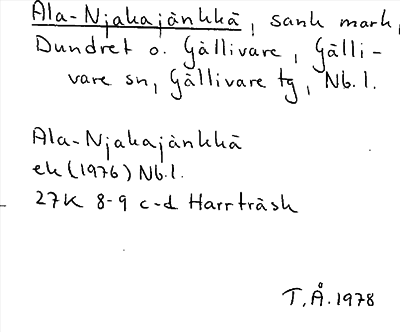 Ala-Njakajänkkä, sank mark,
Dundret o. Gällivare, Gälli-
vare sn, Gällivare tg, Nb.l.
Ala-Njakajänkkä
ek (1976) Nb.l.
27K 8-9 c-d Harrträsk
T.Å. 1978